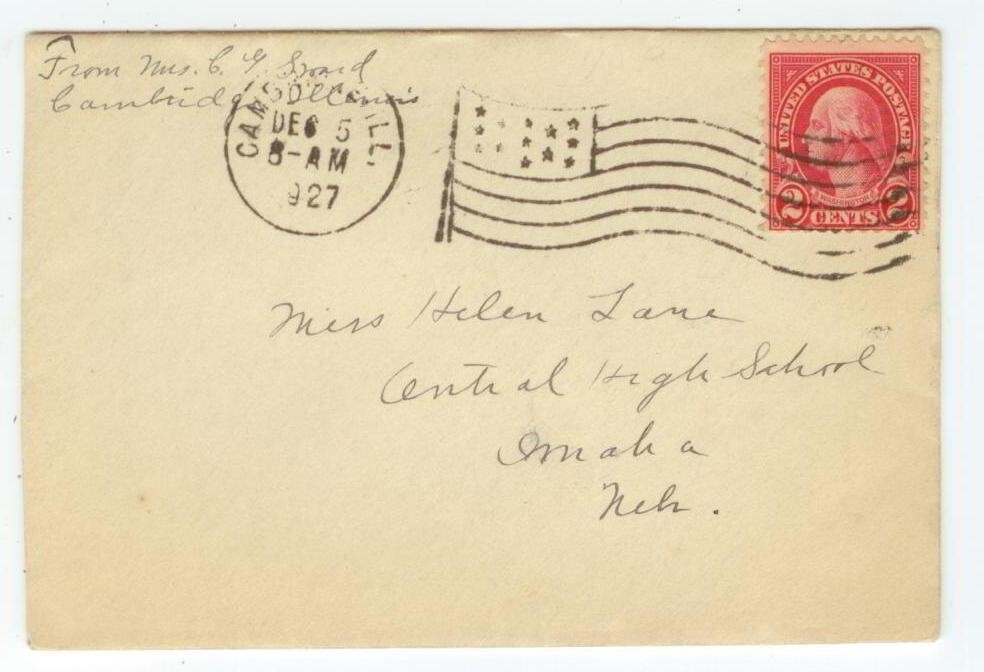 From Mrs. C. G.
Cambridge Illinois
CAMBRIDGE ILL.
DEC 5
8-AM
1927
UNITED STATES POSTAGE
WASHINGTON
2 CENTS 2
Miss Helen Lane
Central High School
Omaha
Nebr.